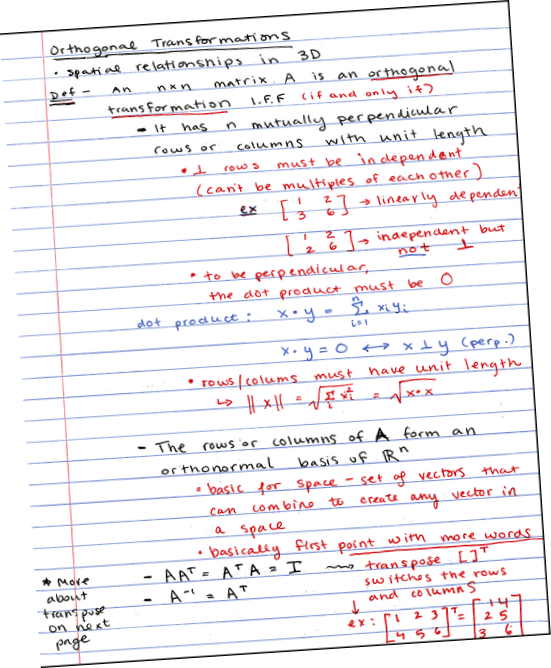 Orthogonal Transformations
• spatial relationships in 3D
Def - An nxn matrix A is an orthogonal
transformation I.F.F (if and only if)
- It has n mutually perpendicular
rows or columns with unit length
• ⊥ rows must be independent
(can't be multiples of each other)
ex [1 2; 3 6] → linearly dependen
[1 2; 2 6] → independent but
not ⊥
• to be perpendicular,
the dot product must be 0
dot product: x•y = Σ_{i=1}^{n} xi yi
x•y = 0 ↔ x ⊥ y (perp.)
• rows/colums must have unit length
↳ ||x|| = √(Σ_i xi²) = √(x•x)
- The rows or columns of A form an
orthonormal basis of ℝⁿ
• basic for space - set of vectors that
can combine to create any vector in
a space
• basically first point with more words
- AAᵀ = AᵀA = I ⇝ transpose [ ]ᵀ
switches the rows
and columns
- A⁻¹ = Aᵀ
ex: [1 2 3; 4 5 6]ᵀ = [1 4; 2 5; 3 6]
* More
about
transpose
on next
page